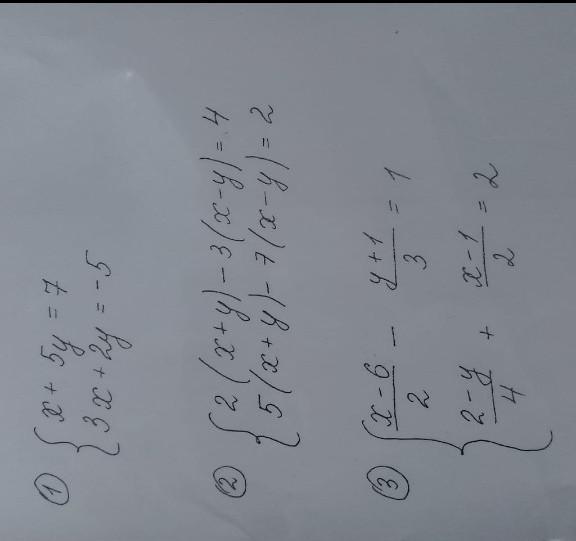 ① { x + 5y = 7
3x + 2y = -5
② { 2(x+y) - 3(x-y) = 4
5(x+y) - 7(x-y) = 2
③ { (x-6)/2 - (y+1)/3 = 1
(2-y)/4 + (x-1)/2 = 2